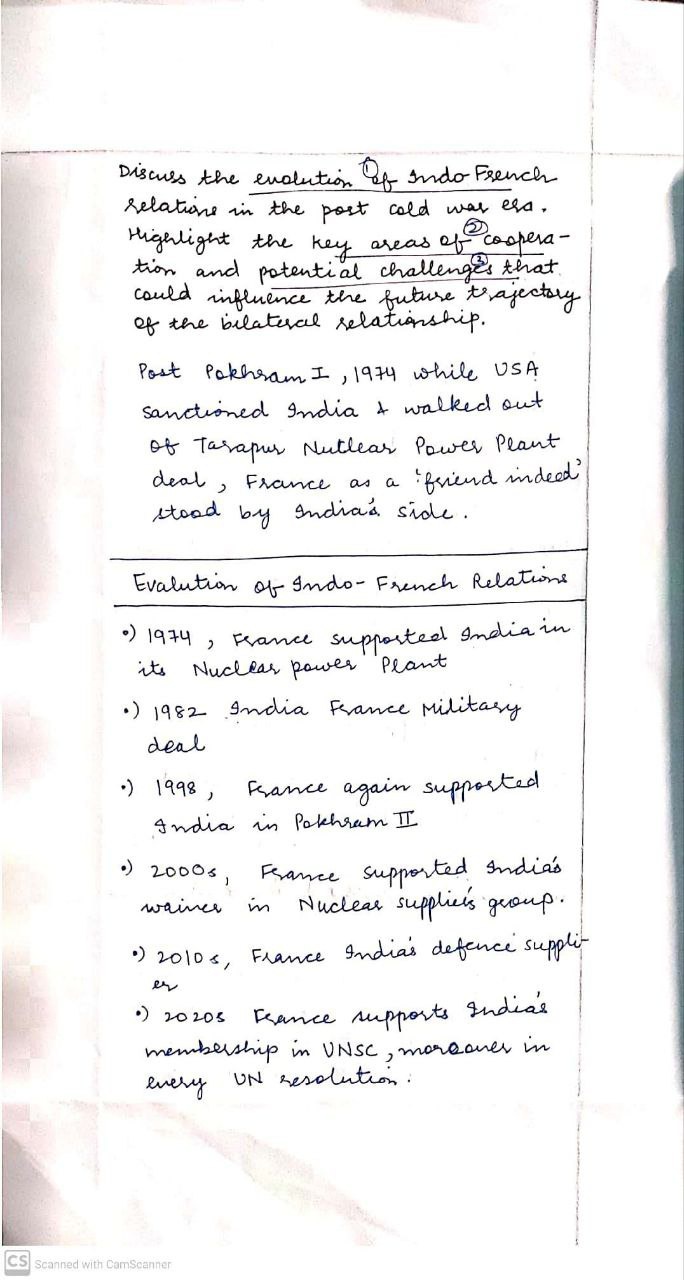 Discuss the evolution ① of Indo French
relations in the post cold war era.
Highlight the key areas of ② coopera-
tion and potential challenges ③ that
could influence the future trajectory
of the bilateral relationship.
Post Pokhram I, 1974 while USA
sanctioned India & walked out
of Tarapur Nutlear Power Plant
deal, France as a 'friend indeed'
stood by India's side.
Evalution of Indo-French Relations
•) 1974, France supported India in
its Nuclear power Plant
•) 1982 India France Military
deal
•) 1998, France again supported
India in Pokhram II
•) 2000s, France supported India's
waiver in Nuclear supplier's group.
•) 2010s, France India's defence suppli-
er
•) 2020s France supports India's
membership in UNSC, moreover in
every UN resolution.
CS Scanned with CamScanner